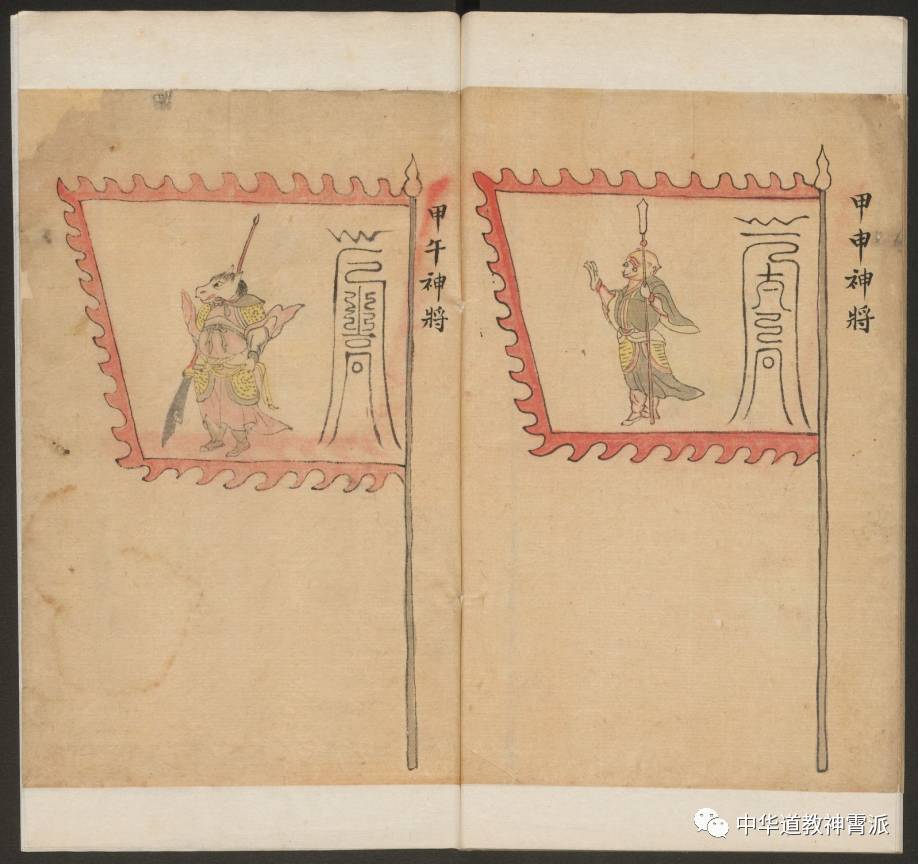 甲申神將
甲午神將
中华道教神霄派